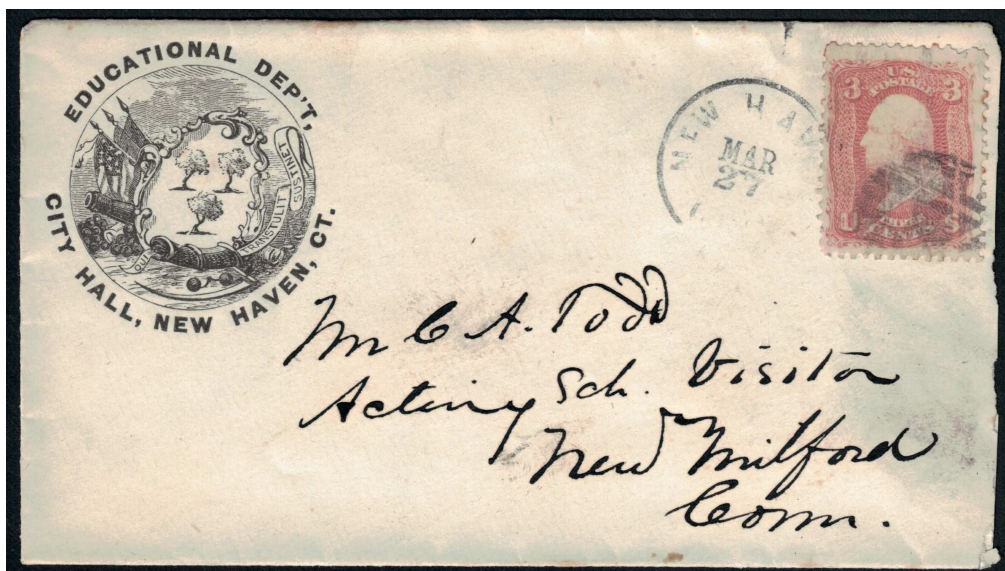 EDUCATIONAL DEP'T,
CITY HALL, NEW HAVEN, CT.
QUI TRANSTULIT SUSTINET
NEW HAV
MAR
27
3 U.S. 3
POSTAGE
U THREE S
CENTS
Mr C A. Todd
Acting Sch. Visitor
New Milford
Conn.